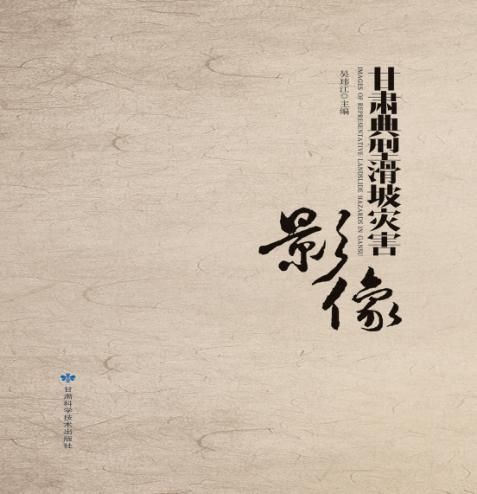 甘肃典型滑坡灾害
影像
IMAGES OF REPRESENTATIVE LANDSLIDE HAZARDS IN GANSU
吴玮江◎主编
甘肃科学技术出版社